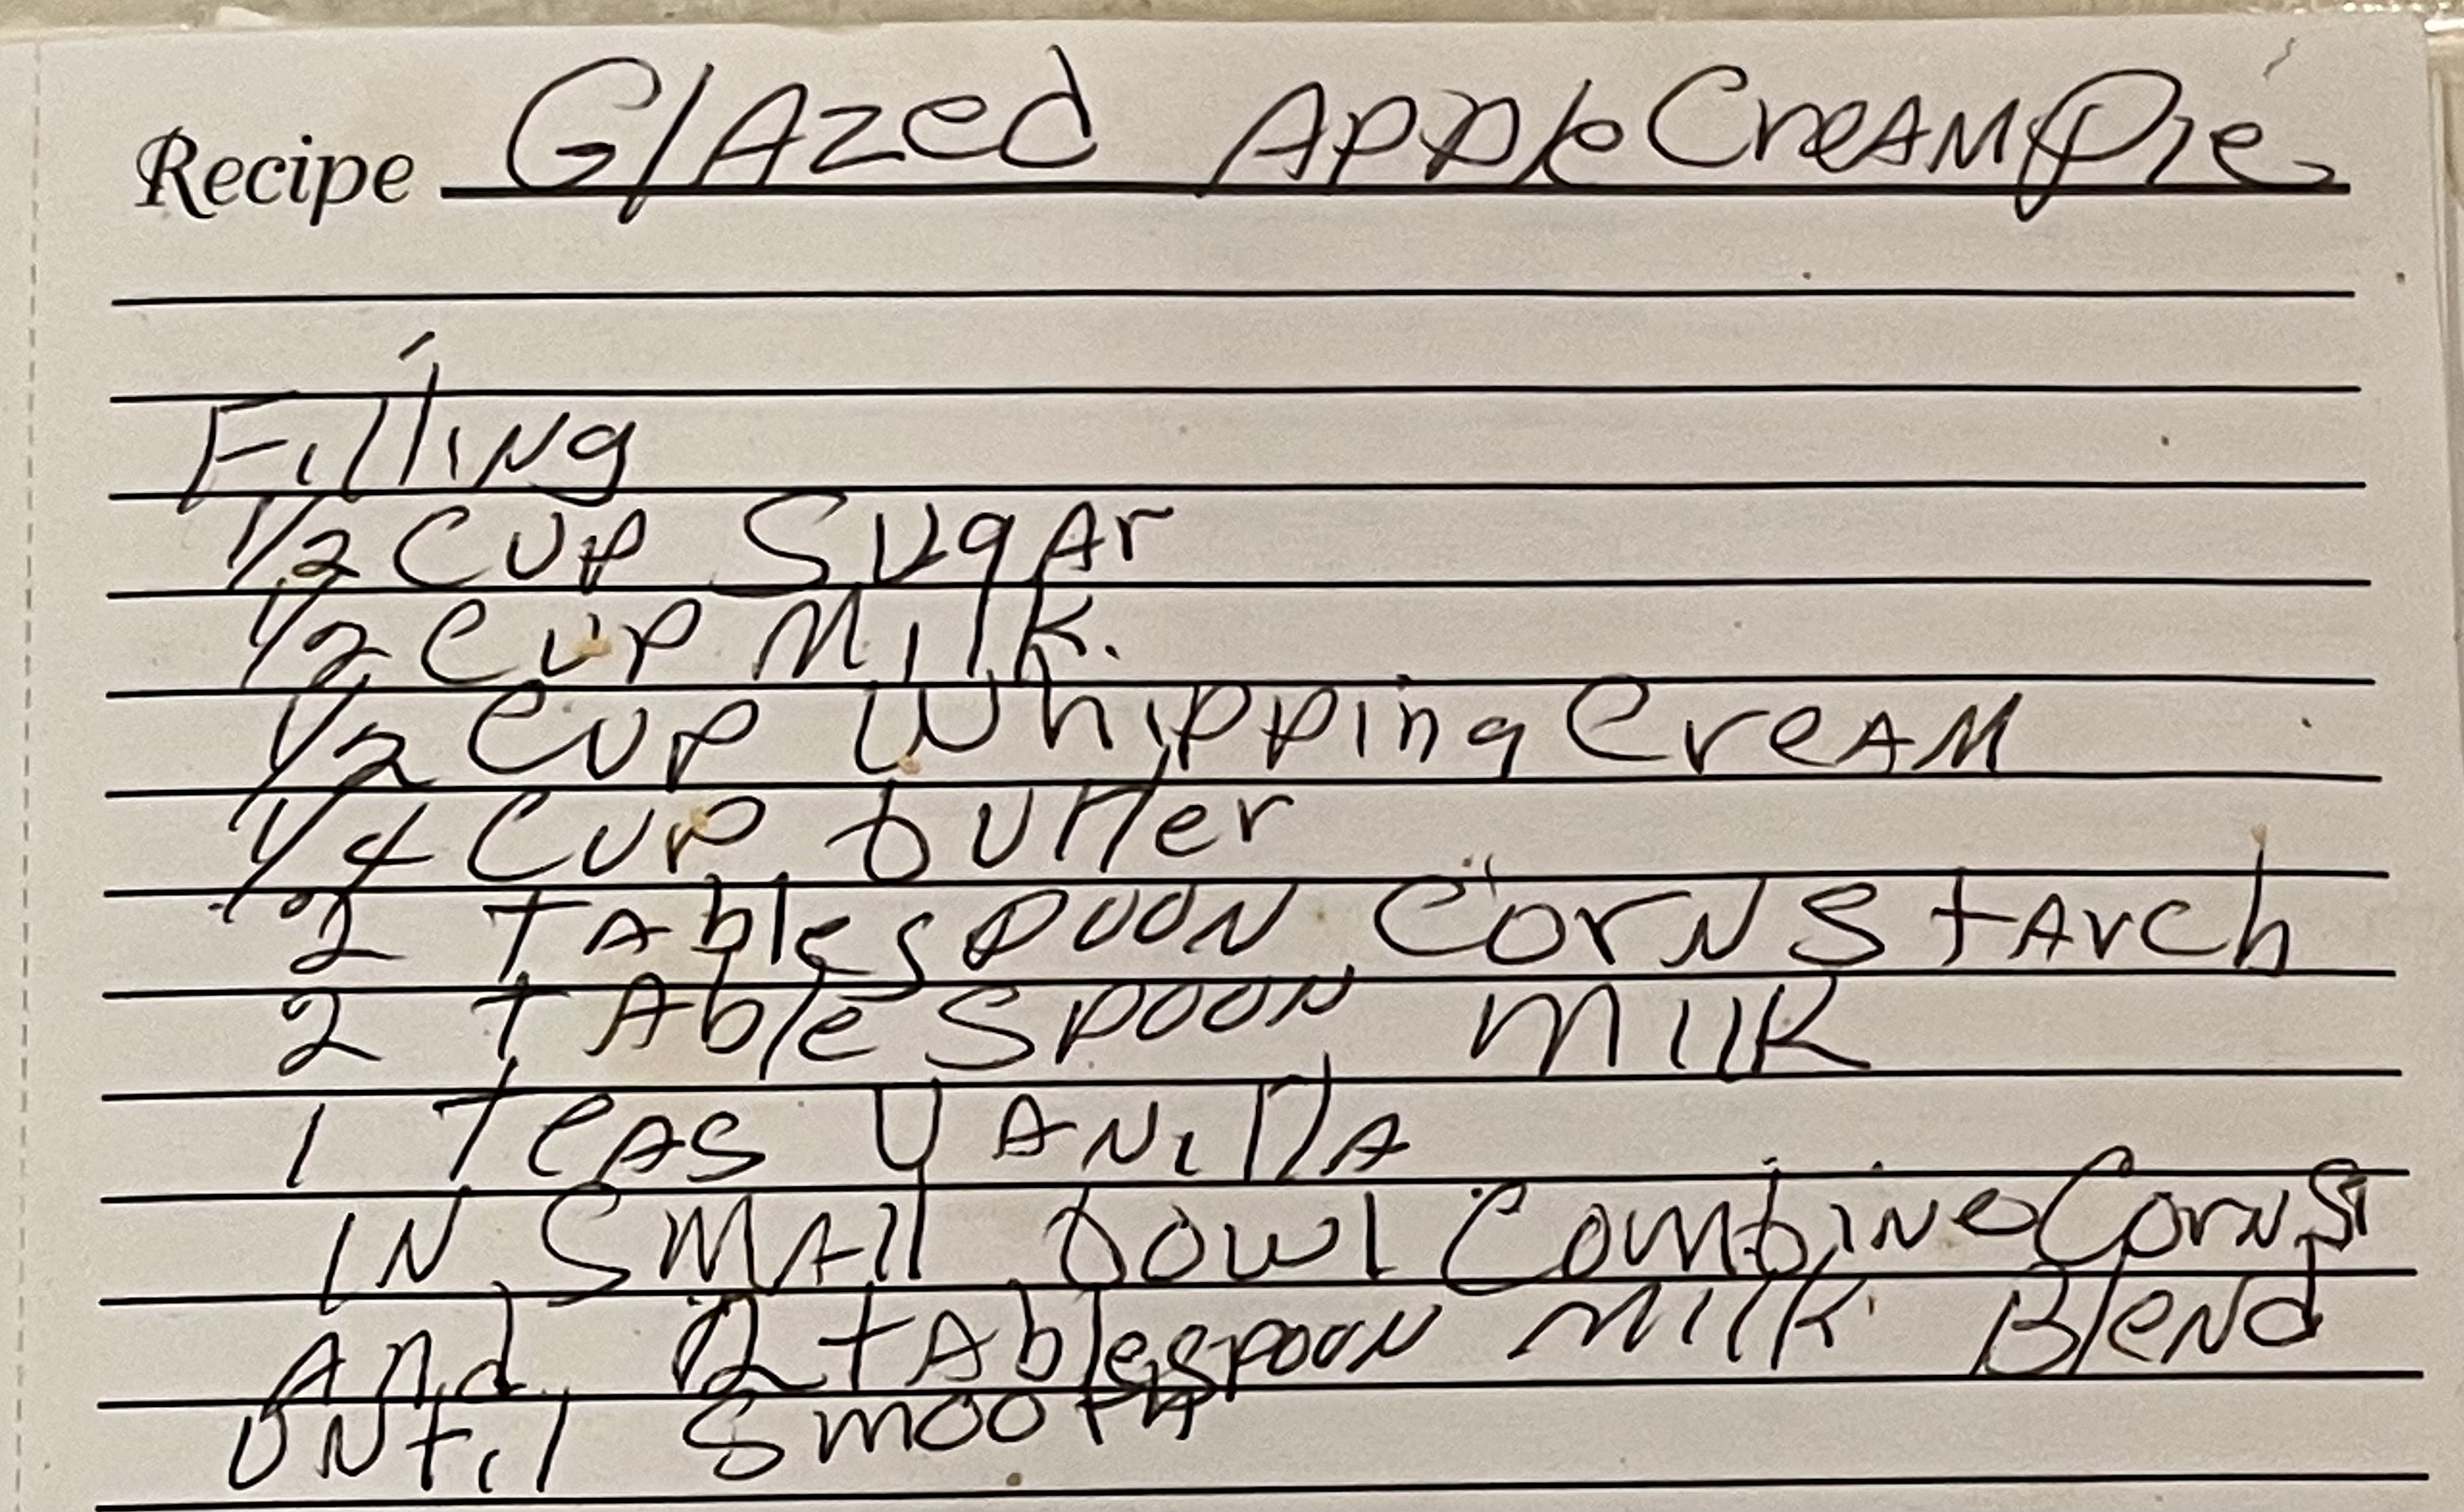 Recipe GlAzed Apple CreAM Pie
Filling
1/2 Cup Sugar
1/2 Cup Milk.
1/2 Cup Whipping CreAM
1/4 Cup butter
2 TAblespoon CornstArch
2 tAblespoon Milk
1 TeAs VANillA
IN SMAll bowl Combine CornSt
And 2 tAblespoon Milk Blend
UNtil Smooth